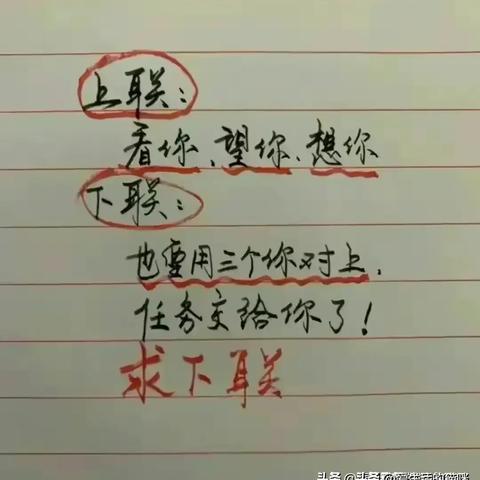 上联：
看你、望你、想你
下联：
也要用三个你对上，
任务交给你了！
求下联